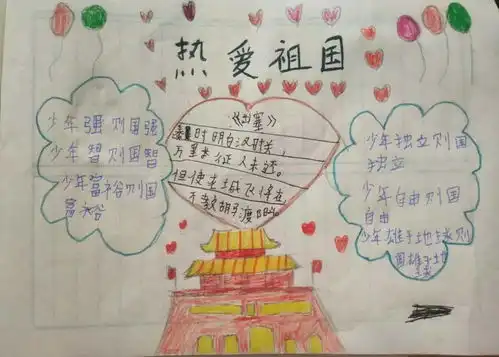 热爱祖国
少年强则国强
少年智则国智
少年富裕则国
富裕
《出塞》
时明月汉时关,
万里长征人未还。
但使龙城飞将在,
不教胡马度阴山。
少年独立则国
独立
少年自由则国
自由
少年雄于地球则
国雄于地球